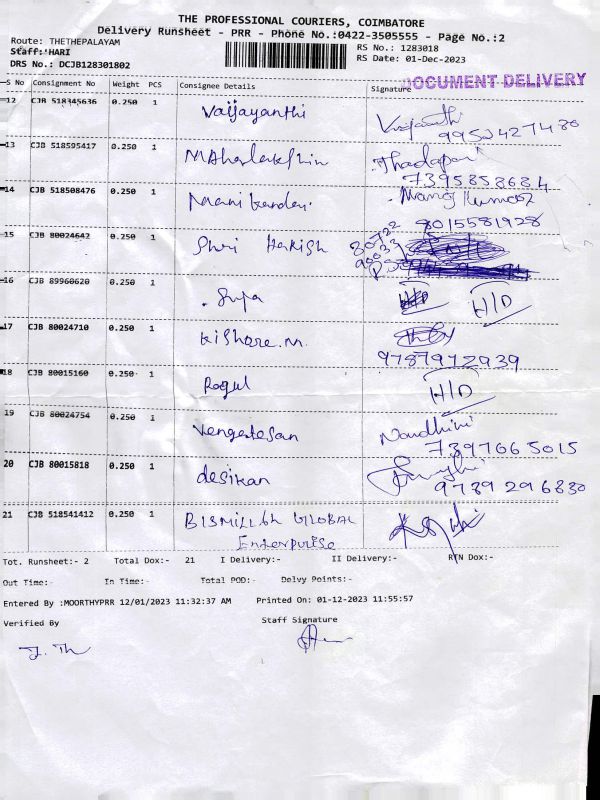 THE PROFESSIONAL COURIERS, COIMBATORE
Delivery Runsheet - PRR - Phone No.:0422-3505555 - Page No.:2
Route: THETHEPALAYAM
RS No.: 1283018
Staff: HARI
RS Date: 01-Dec-2023
DRS No.: DCJB128301802
DOCUMENT DELIVERY
S No Consignment No Weight PCS Consignee Details Signature
12 CJB 518345636 0.250 1 Vaijayanthi
9952427480
13 CJB 518595417 0.250 1
7395858684
14 CJB 518508476 0.250 1 Manikandan Manoj Kumar
8015581928
15 CJB 80024642 0.250 1 Shri Harish
16 CJB 89960620 0.250 1 H/D
17 CJB 80024710 0.250 1 Kishore.M.
9787972939
18 CJB 80015160 0.250 1 Ragul H/D
19 CJB 80024754 0.250 1 Vengatesan Nandhini
7397665015
20 CJB 80015818 0.250 1 desikan
9789296830
21 CJB 518541412 0.250 1 BISMILLAh GLOBAL
Enterprise
Tot. Runsheet:- 2 Total Dox:- 21 I Delivery:- II Delivery:- RTN Dox:-
Out Time:- In Time:- Total POD:- Delvy Points:-
Entered By :MOORTHYPRR 12/01/2023 11:32:37 AM Printed On: 01-12-2023 11:55:57
Verified By Staff Signature